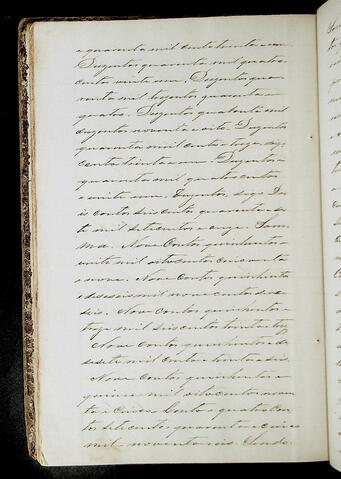 e quarenta mil cento trinta e um.
Duzentos quarenta mil quatro
centos vinte e um. Duzentos qua
renta mil trezentos quarenta e
quatro. Duzentos quarenta mil
duzentos noventa e oito. Duzentos
quarenta mil cento e treze, digo,
cento trinta e um. Duzentos e
quarenta mil quatro centos
e vinte um. Duzentos, digo Do
is contos seis centos quarenta e se
te mil sete centos e onze. Som
ma. Nove Contos quinhentos e
vinte mil oito centos cincoenta
e nove. Nove Contos quinhentos
e deseseis mil nove centos dese
seis. Nove Contos quinhentos e
treze mil seis centos trinta e trez
Nove Contos quinhentos e de
sesete mil cento e trinta e seis.
Nove Contos quinhentos e
quinze mil oito centos noven
ta e cinco Cento e quatro Con
tos sete centos quarenta e cinco
mil noventa e seis Sendo